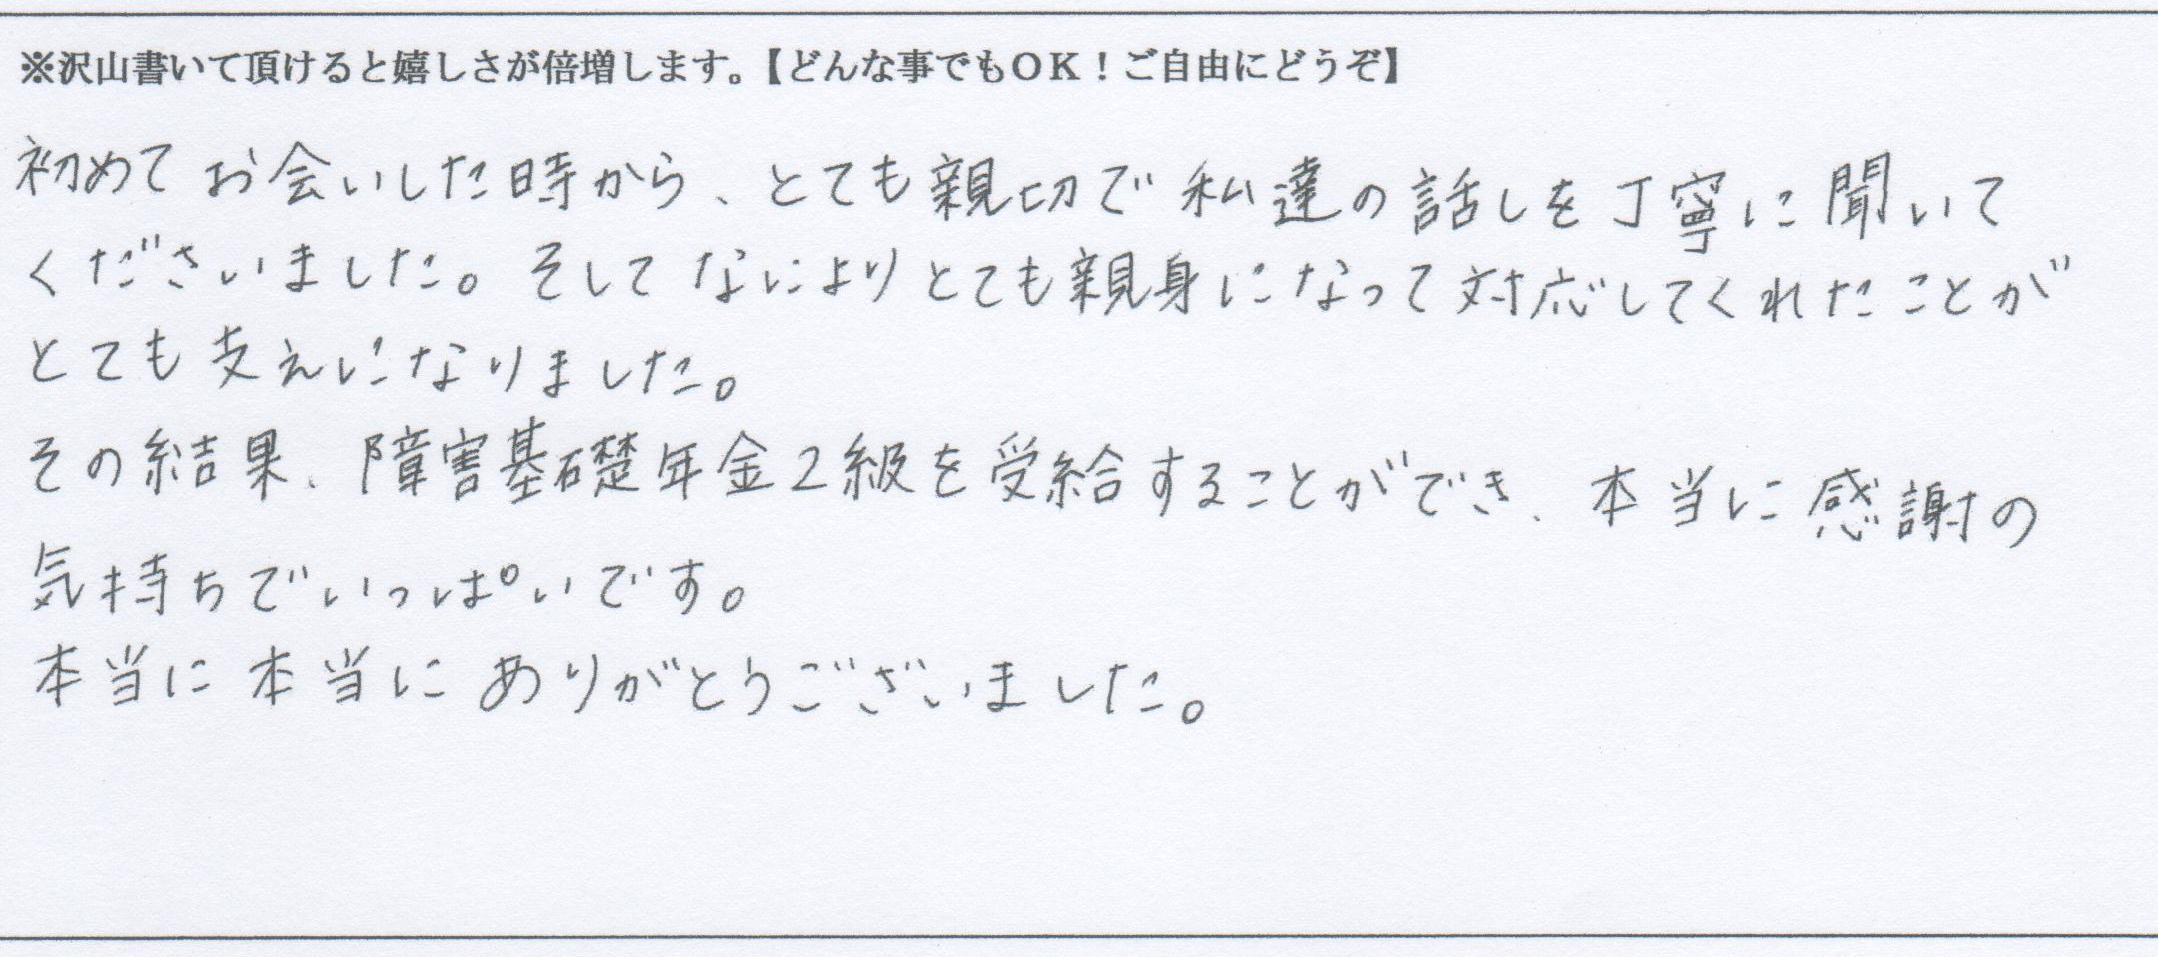 ※沢山書いて頂けると嬉しさが倍増します。【どんな事でもＯＫ！ご自由にどうぞ】
初めてお会いした時から、とても親切で私達の話しを丁寧に聞いて
くださいました。そしてなによりとても親身になって対応してくれたことが
とても支えになりました。
その結果、障害基礎年金2級を受給することができ、本当に感謝の
気持ちでいっぱいです。
本当に本当にありがとうございました。